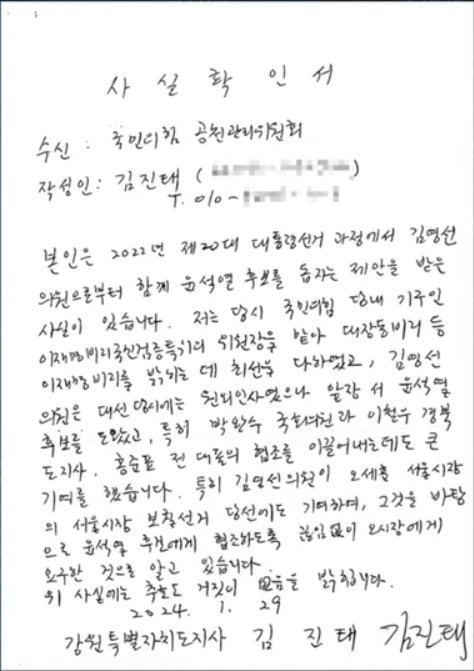 사 실 확 인 서
수신 : 국민의힘 공천관리위원회
작성인 : 김진태 (
T. 010-
본인은 2022년 제20대 대통령선거 과정에서 김영선
의원으로부터 함께 윤석열 후보를 돕자는 제안을 받은
사실이 있습니다. 저는 당시 국민의힘 당내 기구인
이재명비리국민검증특위의 위원장을 맡아 대장동비리 등
이재명 비리를 밝히는 데 최선을 다하였고, 김영선
의원은 대선 당시에는 원외인사였으나 앞장 서 윤석열
후보를 도왔고, 특히 박완수 국회의원과 이철우 경북
도지사. 홍준표 전 대표의 협조를 이끌어내는데도 큰
기여를 했습니다. 특히 김영선의원이 오세훈 서울시장
의 서울시장 보칠선거 당선에도 기여하며, 그것을 바탕
으로 윤석열 후보에게 협조하도록 끊임없이 오시장에게
요구한 것으로 알고 있습니다.
위 사실에는 추호도 거짓이 없음을 밝힙니다.
2024. 1. 29
강원특별자치도지사 김 진 태 김진태